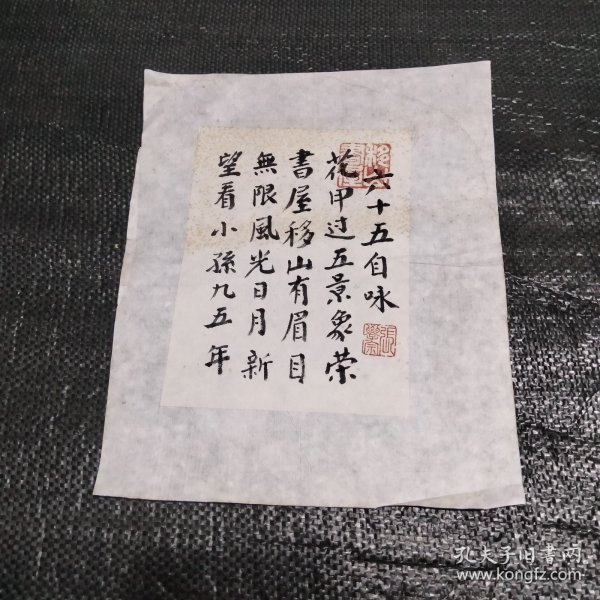 六十五自咏
花甲过五景象荣
書屋移山有眉目
無限風光日月新
望看小孫九五年
孔夫子旧書网
www.kongfz.com